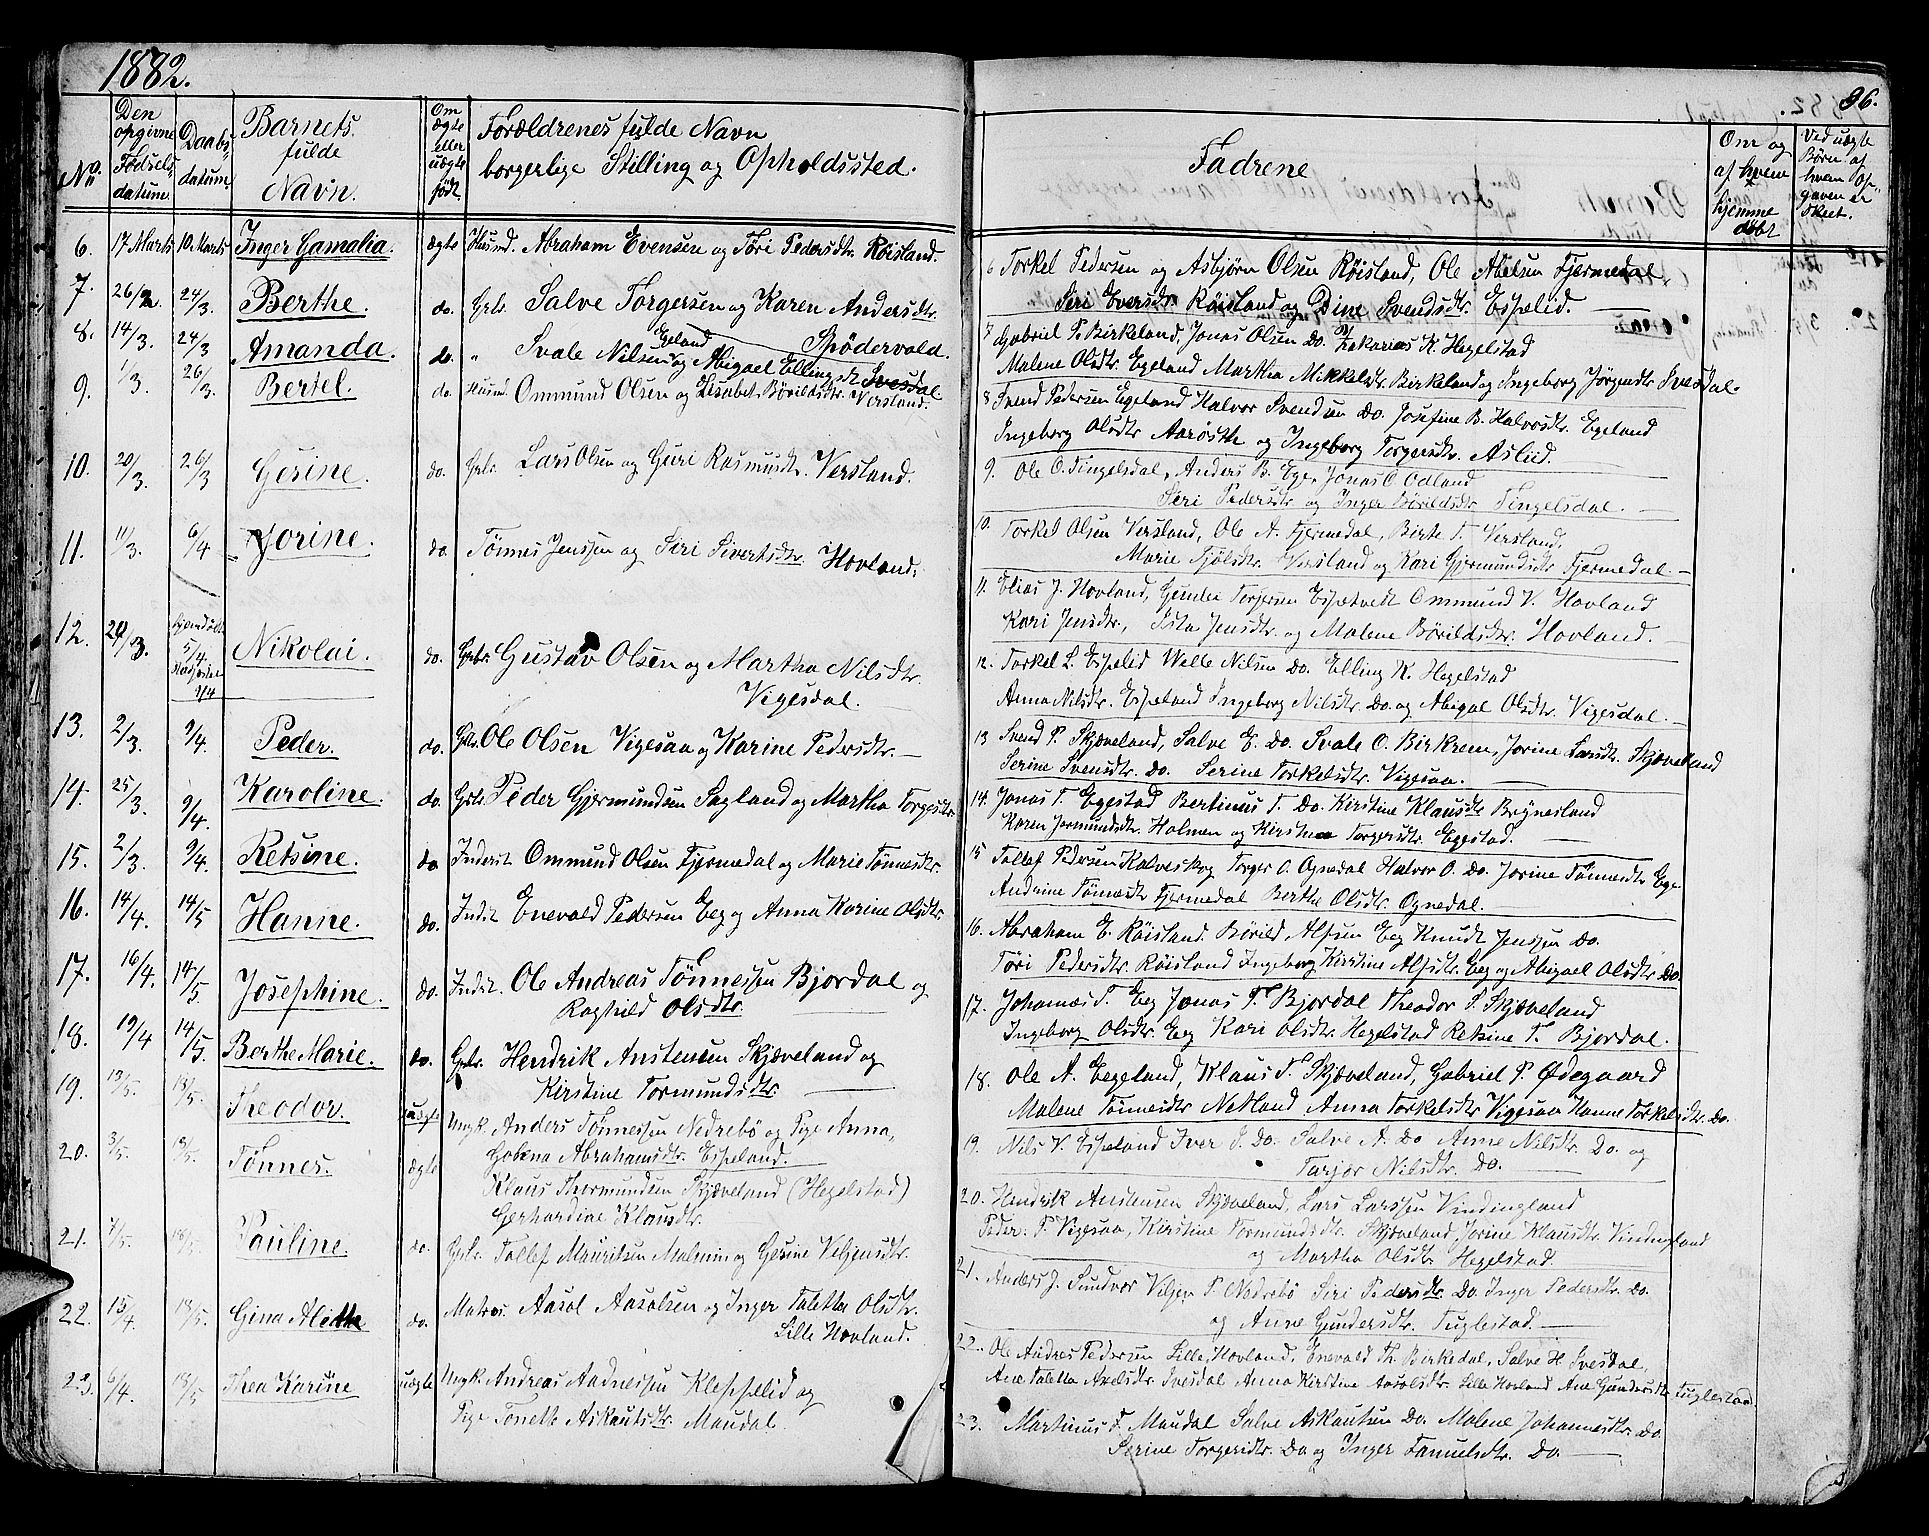 1882.
96.
No.
Den opgivne Fødselsdatum
Daabsdatum
Barnets fulde Navn.
Om ægte eller uægte født
Forældrenes fulde Navn borgerlige Stilling og Opholdssted.
Fadrene
Om og af hvem hjemme døbt
Ved uægte Børn af hvem Opgaven er skeet.
6. 17 Marts 10. Marts Inger Gamalia. ægte Husmd. Abraham Evensen og Tori Pedersdtr. Røisland.
7. 26/2 24/3 Berthe. do. Grbr. Salve Torgersen og Karen Andersdtr.
Spødervold.
8. 14/3. 24/3 Amanda. do. " Svale Nilsen Egeland og Abigael Ellingsdt Svesdal.
9. 1/3. 26/3. Bertel. do. Husmd Ommund Olsen og Lisabet Børildsdtr. Versland.
10. 20/3. 26/3 Gesine. do. Grbr. Lars Olsen og Guri Rasmusdtr. Versland.
11. 11/3. 6/4 Jorine. do. Tønnes Jenssen og Siri Sivertsdtr. Hovland.
12. 20/3. 5/4 Nikolai. do. Grbr. Gustav Olsen og Martha Nilsdtr.
Vigesdal.
13. 2/3. 9/4. Peder. do. Grbr. Ole Olsen Vigesaa og Karine Pedersdtr.
14. 25/3. 9/4. Karoline. do. Grbr. Peder Gjermundsen Sagland og Martha Torgesdtr.
15. 2/3. 9/4. Retsine. do Inderst Ommund Olsen Fjermedal og Marie Tønnesdtr.
16. 14/4. 14/5 Hanne. do. Indst Enevald Pedersen Eeg og Anna Karine Olsdtr.
17. 16/4. 14/5 Josephine. do. Indst. Ole Andreas Tønnessen Bjordal og
Raghild Olsdtr.
18. 19/4 14/5. Berthe Marie. do. Grbr. Hendrik Anstensen Skjæveland og
Kirstine Tormundsdtr.
19. 13/5. 18/5. Theodor. uægte Ungk. Anders Tønnessen Nedrebø og Pige Anna,
Gabina Abrahamsdtr. Espeland.
20. 3/5. 18/5. Tønnes. ægte Klaus Thormundsen Skjæveland (Hegelstad)
Gerhardine Klausdtr.
21. 7/5. 18/5. Pauline do. Grbr. Tollef Mauritsen Malmin og Gesine Veljensdtr.
22. 15/4. 18/5. Gina Alette do. Matros. Aasol Aasolsen og Inger Taletta Olsdtr.
Lille Hovland.
23. 6/4. 18/5 Thea Karine uægte Ungk Andreas Aadnessen Kleppelid og
Pige Tonette Askautsdtr. Maudal.
6 Torkel Pedersen og Asbjørn Olsen Røisland, Ole Abelsen Fjermedal
Siri Eversdtr. Røisland og Dine Svendsdtr. Espelid.
7 Gabriel P. Birkeland, Jonas Olsen Do. Zakarias K. Hegelstad
Malene Olsdtr. Egeland Martha Mikkelsdtr. Birkeland og Ingeborg Jørgensdtr Svesdal.
8 Svend Pedersen Egeland Halvor Svendsen Do. Josefine B. Halvosdtr. Egeland
Ingeborg Olsdtr Aarosth og Ingeborg Torgersdtr. Aslid.
9. Ole O. Tingelsdal, Anders B. Ege, Jonas O Odland
Siri Pedersdtr. og Inger Børildsdtr Tingelsdal.
10. Torkel Olsen Versland, Ole A. Fjermedal, Birte T. Versland,
Marie Tjølsdtr. Versland og Kari Gjermundsdtr Fjermedal.
11. Elias J. Hovland, Gunder Torgersen Espetvedt Ommund V. Hovland
Kari Jensdtr., Asta Jensdtr. og Malene Børildsdtr. Hovland.
12. Torkel L. Espelid Welle Nilsen Do. Elling K. Hegelstad
Anna Nilsdtr. Espeland Ingeborg Nilsdtr. Do. og Abigal Olsdtr. Vigesdal.
13 Svend P. Skjæveland, Salve E. Do. Svale O. Birkrem, Jorine Larsdtr. Skjæveland
Serine Svensdtr. Do. Serine Torkelsdtr. Vigesaa.
14. Jonas T. Egestad Bertinus T. Do. Kirstine Klausdtr Brynesland
Karen Jormundsdtr. Holmen og Kirstine Torgersdtr. Egestad.
15 Tollef Pedersen Kalveskog Torger O. Ognedal Halvor O. Do. Jorine Tønnesdtr Ege
Andrine Tønnesdtr Fjermedal Berthe Olsdtr. Ognedal.
16. Abraham E. Røisland. Børild Alfsen Eeg Knudt Jenssen Do.
Tori Pedersdtr. Røisland Ingeborg Kirstine Alfsdtr. Eeg og Abigael Olsdtr. Do.
17. Johannes T. Eeg Jonas T. Bjordal Theodor S. Skjæveland
Ingeborg Olsdtr. Eeg Kari Olsdtr. Hegelstad Retsine T. Bjordal.
18. Ole A. Eegeland, Klaus T. Skjæveland, Gabriel P. Ødegaard
Malene Tønnesdtr Netland Anna Torkelsdtr Vigesaa Hanne Torkelsdtr. Do.
19. Nils V. Espeland Iver I. Do. Salve A. Do Anne Nilsdtr. Do. og
Tarjer Nilsdtr. Do.
20. Hendrik Anstensen Skjæveland, Lars Larssen Vindingland
Peder P. Vigesaa, Kirstine Tormundsdtr. Skjæveland Jorine Klausdtr. Vindingland
og Martha Olsdtr Hegelstad.
21. Anders J. Sundvor Veljen P. Nedrebø Siri Pedersdtr. Do. Inger Pedersdtr. Do.
og Anne Gundersdtr. Fuglestad.
22. Ole Andres Pedersen Lille Hovland. Enevald Th. Birkedal, Salve H. Svesdal,
Ane Taletta Axelsdtr. Svesdal Anna Kirstine Aasolsdtr. Lille Hovland Ane Gundersdtr Fuglestad
23. Martinus T. Maudal Salve Askautsen Do. Malene Johannesdtr. Do
Serine Torgersdtr. Do og Inger Samuelsdtr. Do.